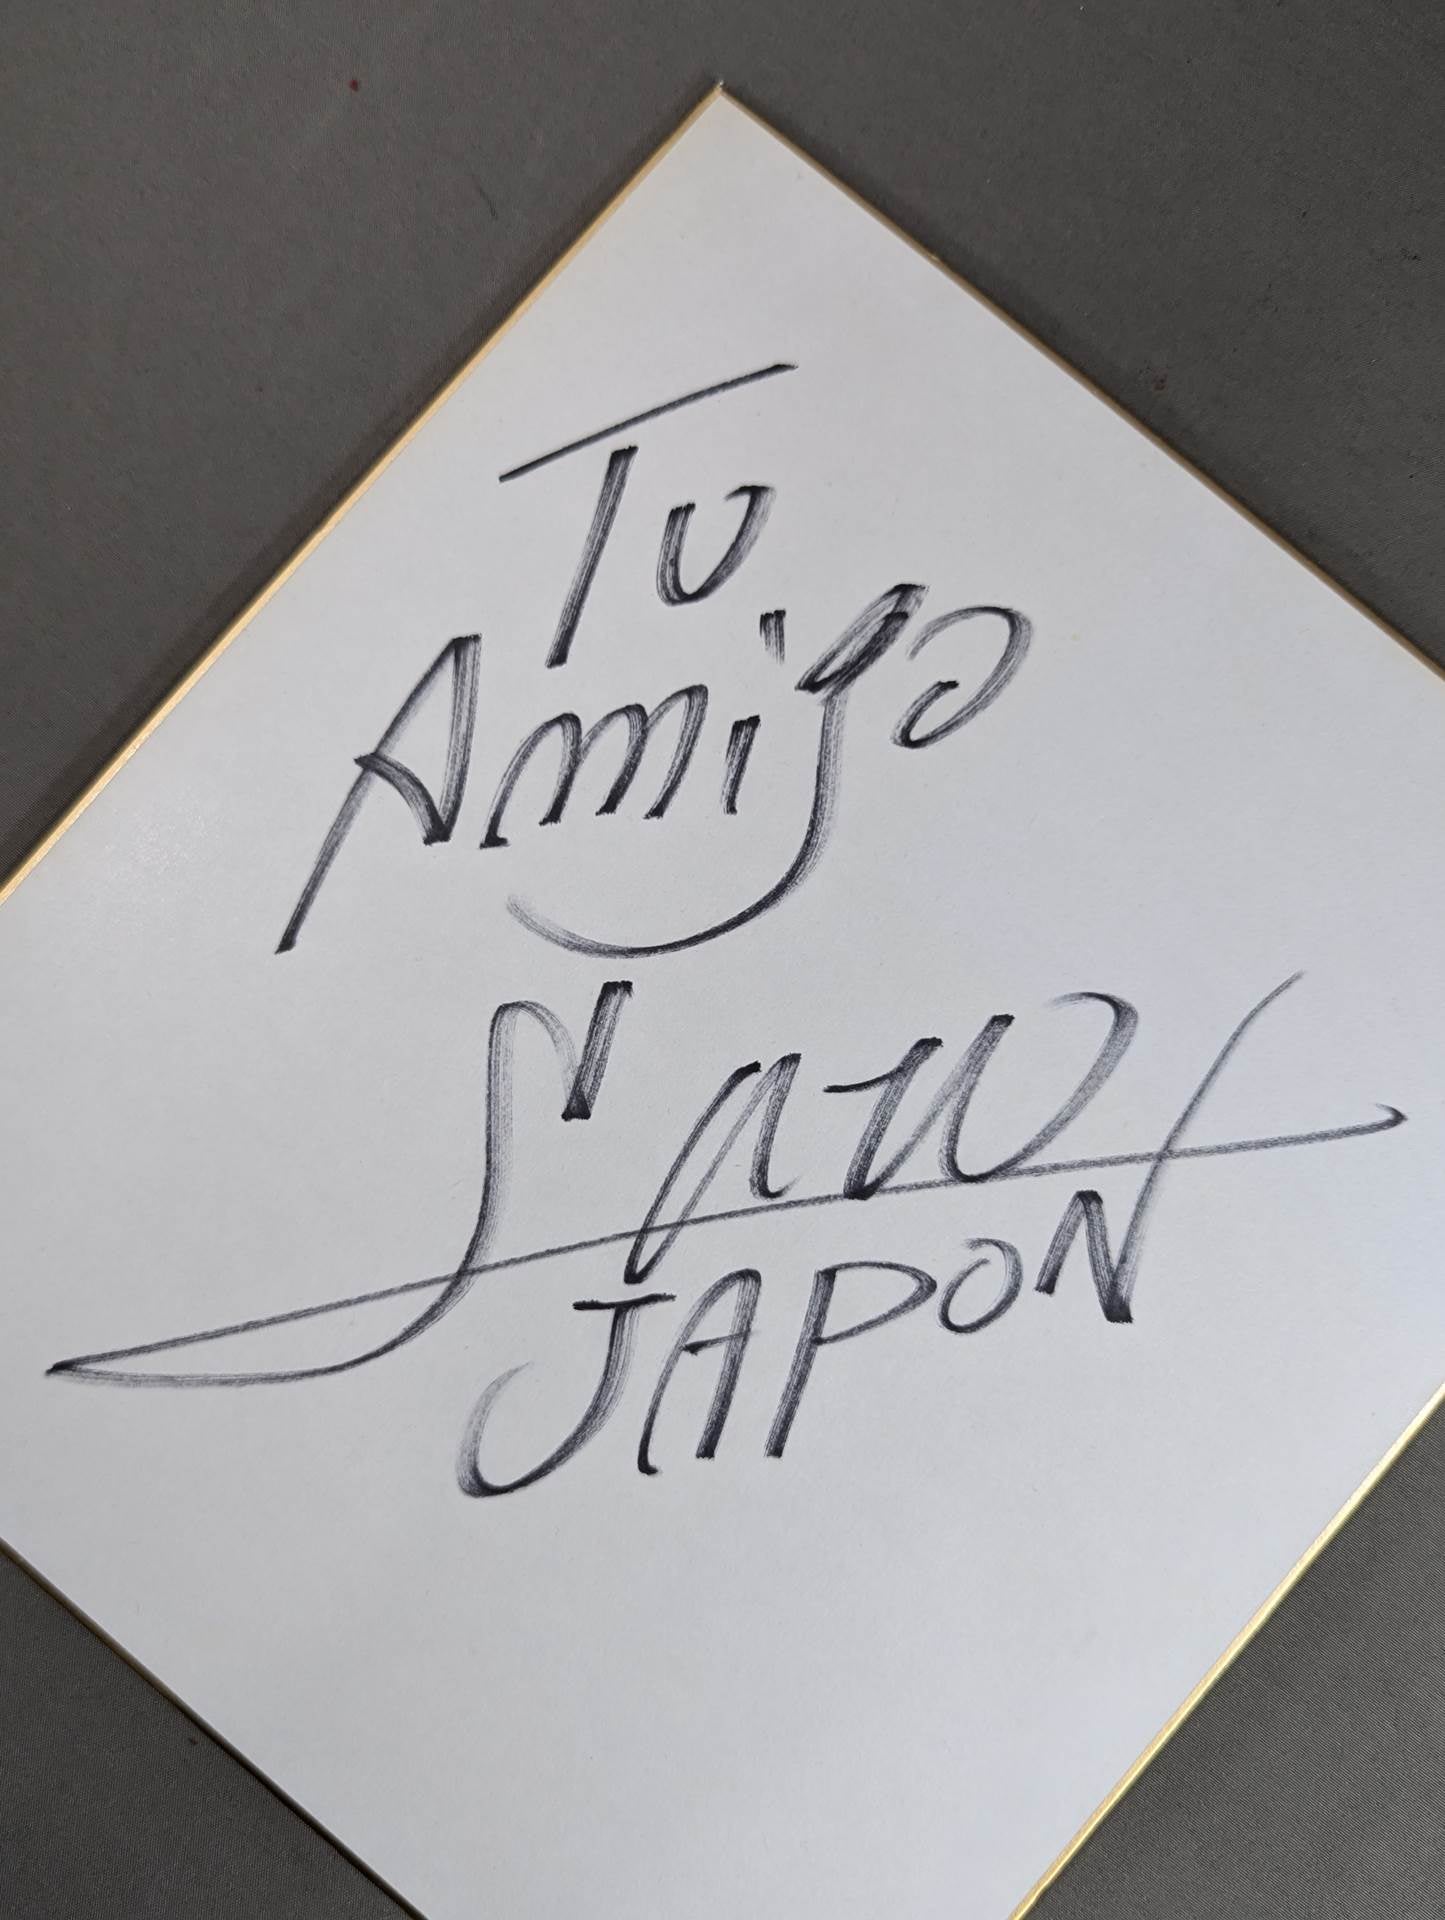 Tu
Amigo
Saw
JAPON